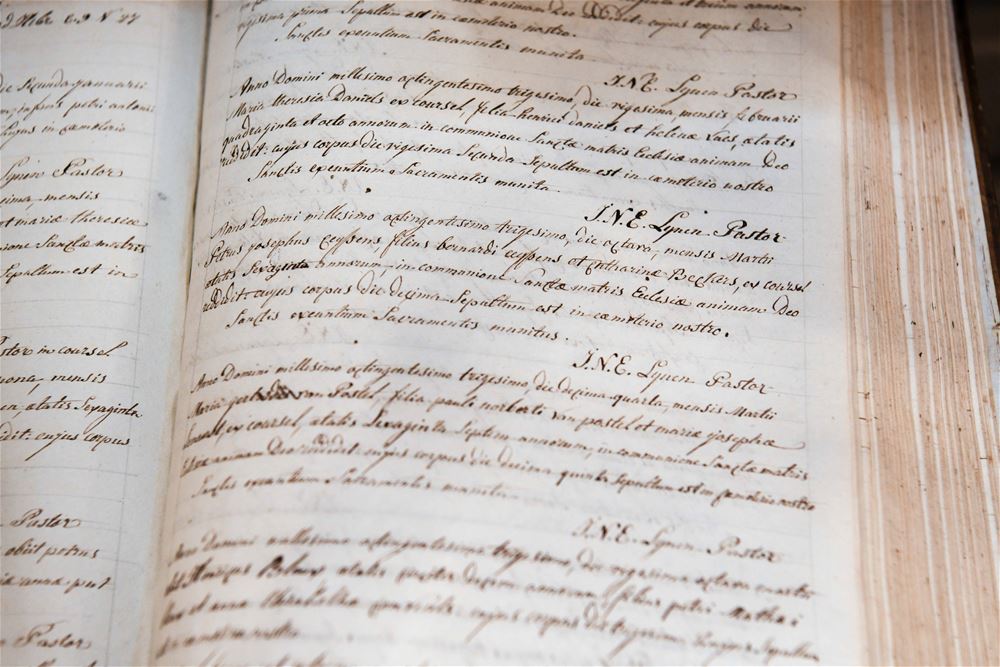 2 9bre
die Secunda januarii
petri antonii
in cœmeterio
Lynen Pastor
mensis
et mariæ theresiæ
Sanctæ matris
Sepultum est in
Pastor in coursel
mensis
ætatis Sexaginta
cujus corpus
Pastor
obiit petrus
Pastor
animam Deo cujus corpus die
vigesima prima Sepultum est in cœmeterio nostro.
Sanctis exeuntium Sacramentis munita
J.N.E. Lynen Pastor
Anno Domini millesimo octingentesimo trigesimo, die vigesima, mensis februarii
Maria theresia Daniels ex coursel, filia henrici daniels et helenæ Vaes, ætatis
quadraginta et octo annorum in communione Sanctæ matris Ecclesiæ animam Deo
reddidit: cujus corpus die vigesima Secunda Sepultum est in cœmeterio nostro
Sanctis exeuntium Sacramentis munita
J.N.E. Lynen Pastor
Anno Domini millesimo octingentesimo trigesimo, die octava, mensis Martii
Petrus josephus ceyssens filius bernardi ceyssens et Catharinæ Beckers, ex coursel
ætatis Sexaginta annorum, in communione Sanctæ matris Ecclesiæ animam Deo
reddidit: cujus corpus die decima Sepultum est in cœmeterio nostro.
Sanctis exeuntium Sacramentis munitus.
J.N.E. Lynen Pastor
Anno Domini millesimo octingentesimo trigesimo, die decima quarta, mensis Martii
Maria van Postel, filia pauli norberti van postel et mariæ josephæ
ex coursel, ætatis Sexaginta Septem annorum, in communione Sanctæ matris
animam Deo reddidit: cujus corpus die decima quinta Sepultum est in cœmeterio nostro
Sanctis exeuntium Sacramentis munita
J.N.E. Lynen Pastor
Anno Domini millesimo octingentesimo trigesimo, die vigesima octava martii
ætatis annorum filius petri
et anna cujus corpus die trigesima Sepultum
in cœmeterio nostro